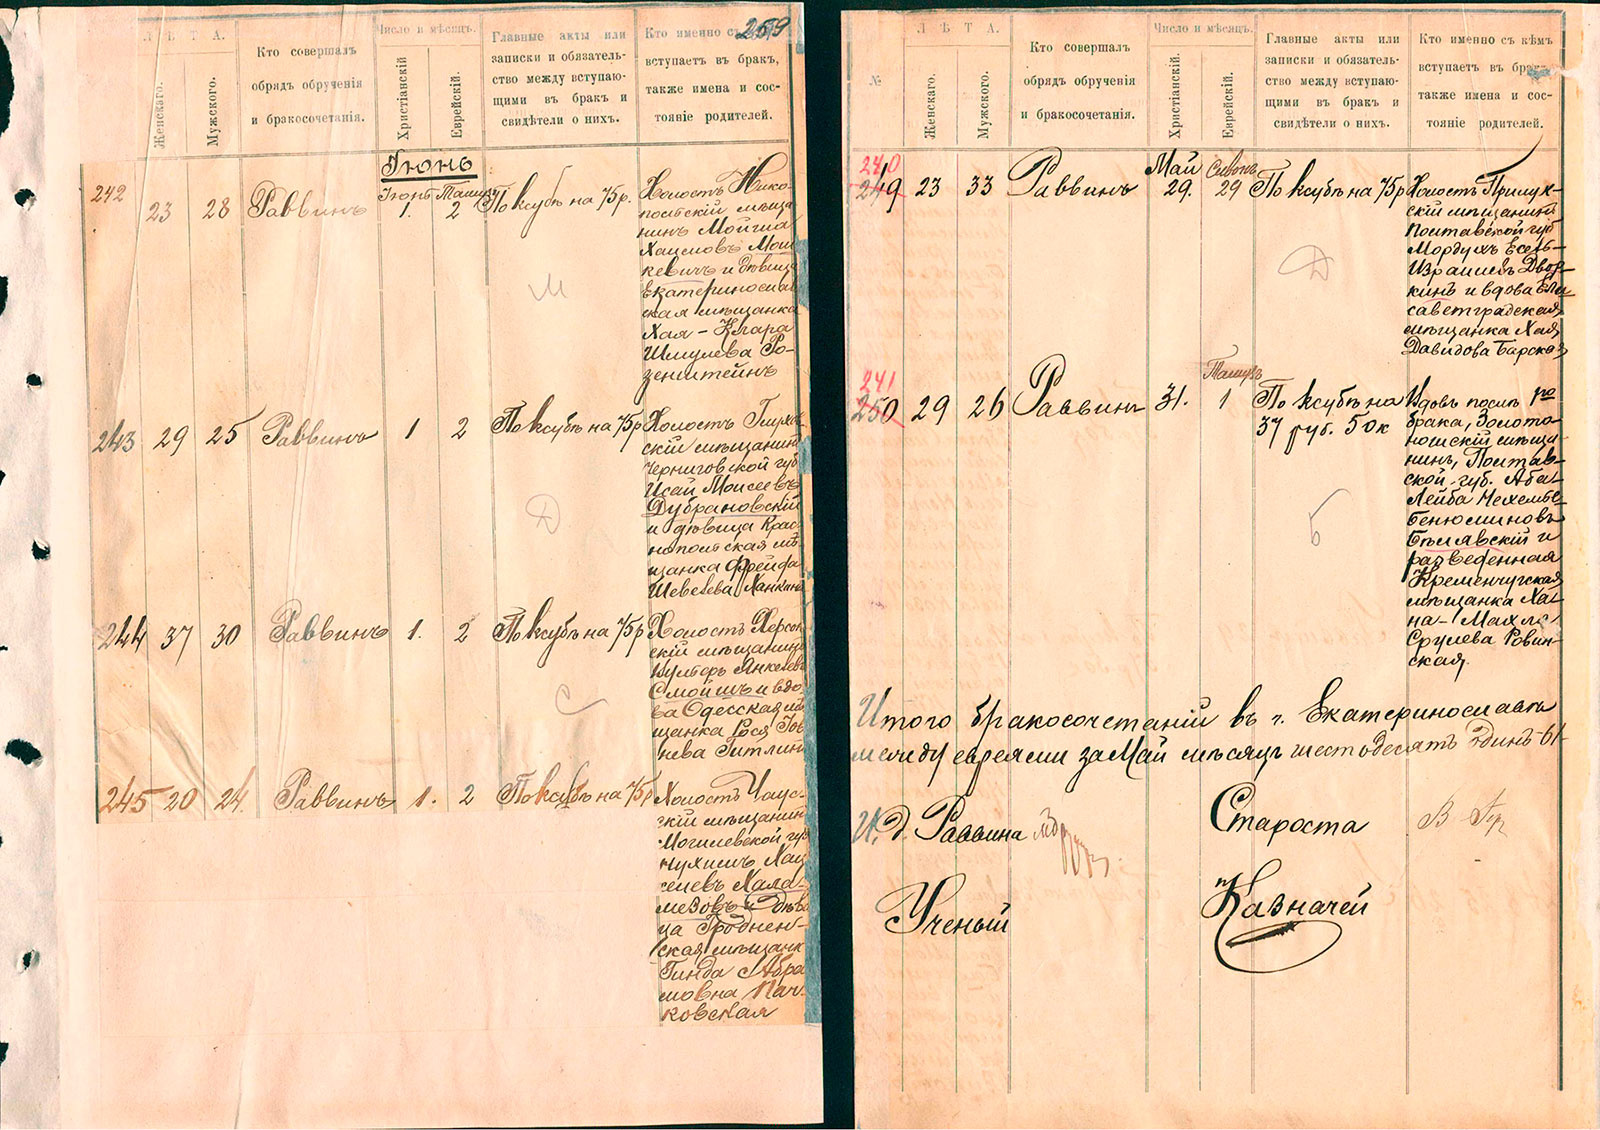 259
Л Ѣ Т А.
Женскаго.
Мужского.
Кто совершалъ
обрядъ обрученія
и бракосочетанія.
Число и мѣсяцъ.
Христіанскій
Еврейскій.
Главные акты или
записки и обязатель-
ство между вступаю-
щими въ бракъ и
свидѣтели о нихъ.
Кто именно съ
вступаетъ въ бракъ,
также имена и сос-
тояніе родителей.
Іюнь
242 23 28 Раввинъ Іюнь 1. Тамузъ 2 По ксубѣ на 75 р.
Холостъ Нико-
польскій мѣща
нинъ Мойша
Хаимовъ Мош
кевичъ и дѣвица
Екатеринослав
ская мѣщанка
Хая-Клара
Шмулева Ро-
зенштейнъ
М
243 29 25 Раввинъ 1 2 По ксубѣ на 75 р
Холостъ Глухов
скій мѣщанинъ
Черниговской губ
Исай Моисеевъ
Дубрановскій
и дѣвица Крас
нопольская мѣ
щанка Фрейда
Шевелева Ханкина
Д
244 37 30 Раввинъ 1. 2 По ксубѣ на 75 р
Холостъ Херсон
скій мѣщанинъ
Анкелевъ
Смойшъ и вдо
ва Одесская мѣ
щанка Гося Гов
нева Гитлин
С
245 20 24. Раввинъ 1. 2 По ксубѣ на 75 р
Холостъ Чаус-
скій мѣщанинъ
Могилевской губ
Нухимъ Хац
келевъ Хала-
мезовъ и дѣви
ца Гроднен-
ская мѣщанк
Гинда Абра
мовна Пач
ковская
№
Л Ѣ Т А.
Женскаго.
Мужского.
Кто совершалъ
обрядъ обрученія
и бракосочетанія.
Число и мѣсяцъ.
Христіанскій.
Еврейскій.
Главные акты или
записки и обязатель-
ство между вступаю-
щими въ бракъ и
свидѣтели о нихъ.
Кто именно съ кѣмъ
вступаетъ въ бракъ,
также имена и сос-
тояніе родителей.
240
249 23 33 Раввинъ Май 29. Сивонъ 29 По ксубѣ на 75 р
Холостъ Прилук-
скій мѣщанинъ
Полтавской губ
Мордухъ Есель-
Израилевъ Двор-
кинъ и вдова Ели
саветградская
мѣщанка Хая
Давидова Барская
Д
241
250 29 26 Раввинъ 31. Тамузъ 1 По ксубѣ на
37 руб. 50 к
Вдовъ послѣ 1го
брака, Золото-
ношскій мѣща
нинъ, Полтав-
ской губ. Аба-
Лейба Нехемье-
Бенюминовъ
Бѣлявскій и
разведенная
Кременчугская
мѣщанка Ха-
на-Махля
Срулева Ровин-
ская.
Б
Итого бракосочетаній въ г. Екатеринославѣ
между евреями за Май мѣсяцъ шестьдесятъ одинъ-61-
И. д. Раввина
Староста
Ученый
Казначей